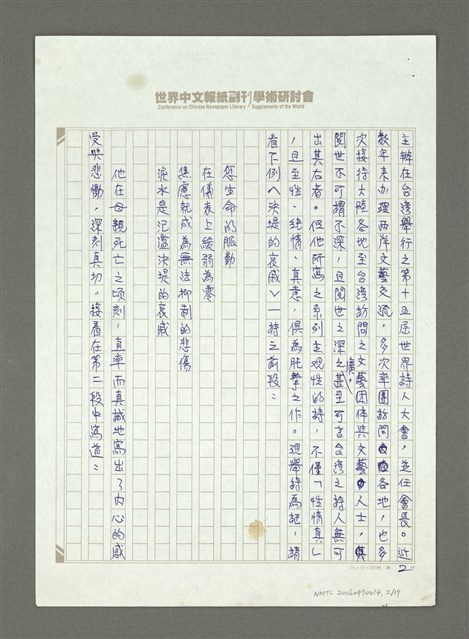 世界中文報紙副刊學術研討會
Conference on Chinese Newspaper Literary Supplements of the World
主辦在台灣舉行之第十五屆世界詩人大會,並任會長。近
數年來辦理兩岸文藝交流,多次率團訪問各地,也多
次接待大陸各地至台灣訪問之文藝團体與文藝人士,與
閱世不可謂不深,且閱世之深之廣,甚至可言台灣之詩人無可
出其右者。但他所寫之系列主观性的詩,不僅「性情真」
,且至性、純情、真意,俱為肫摯之作。現舉詩為証,請
看下例〈決堤的哀慼〉一詩之前段:
您生命的脈動
在儀表上緩弱為零
焦慮就成為無法抑制的悲傷
淚水是氾濫決堤的哀慼
他在母親死亡之頃刻,直率而真誠地寫出了內心的感
受與悲慟,深刻真切。接着在第二段中寫道:
2
NMTL 20060490014, 2/17